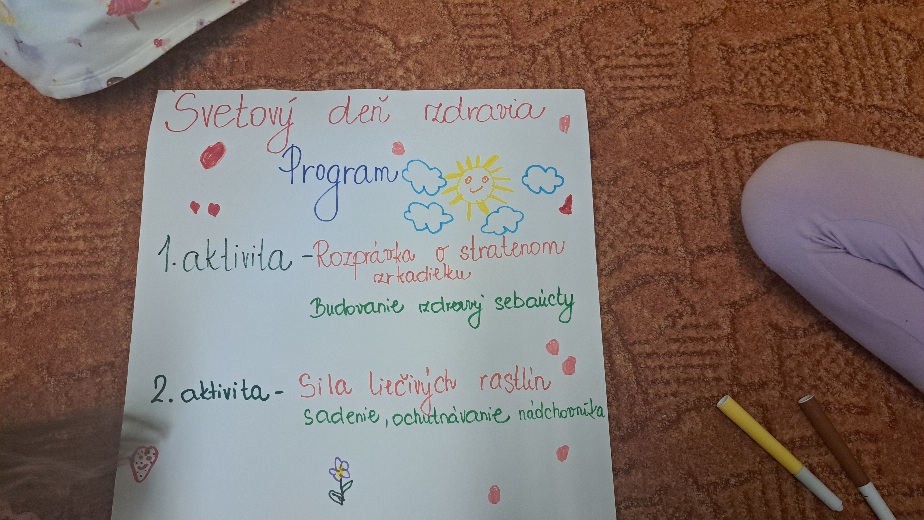 Svetový deň zdravia
Program
1. aktivita - Rozprávka o stratenom
zrkadielku
Budovanie zdravej sebaúcty
2. aktivita - Sila liečivých rastlín
sadenie, ochutnávanie nádchovníka